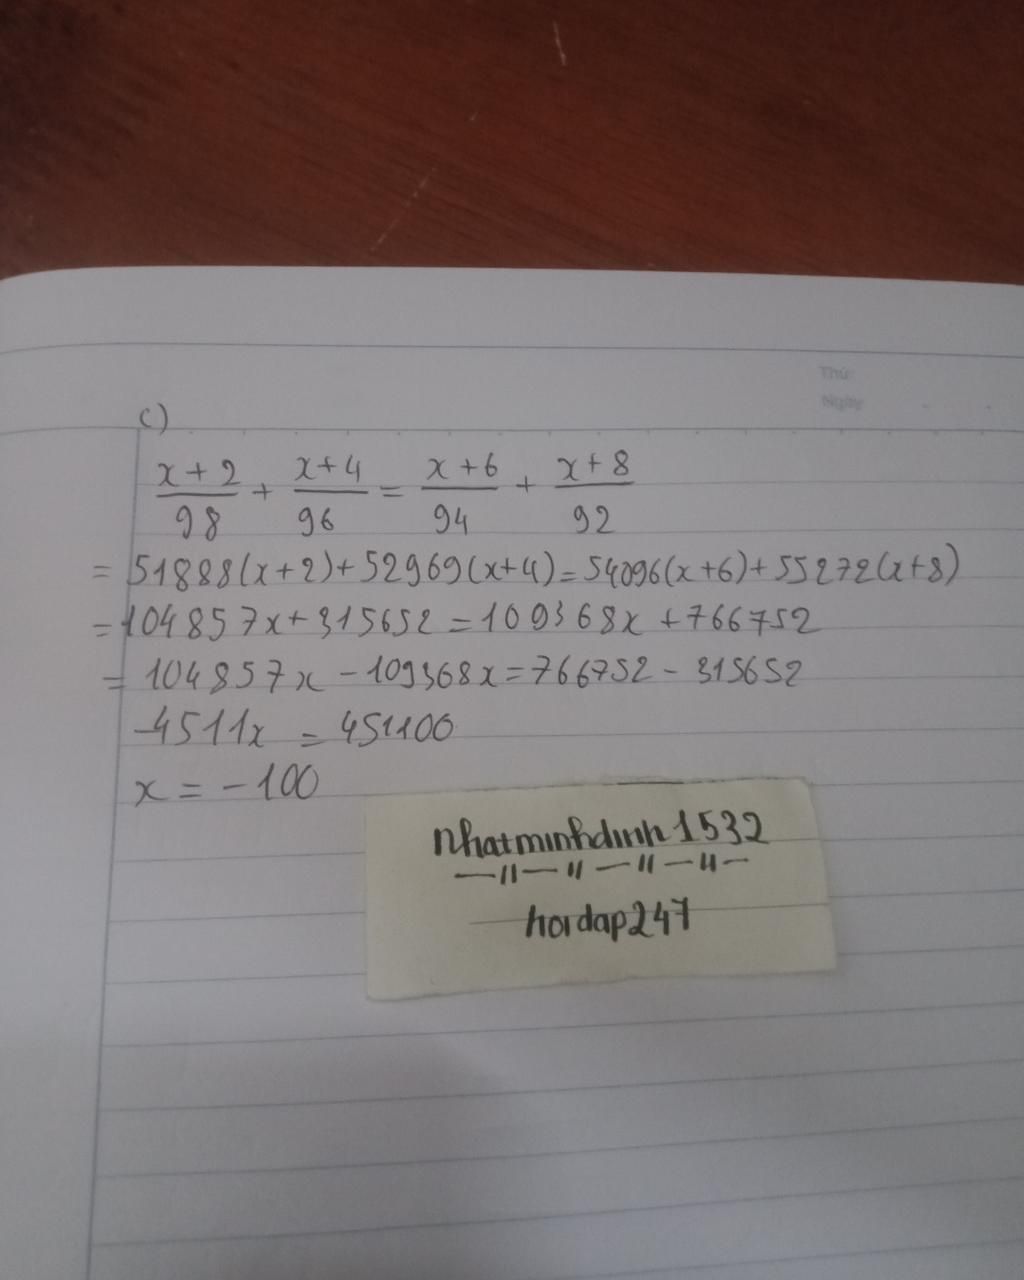 Thứ
Ngày
c)
x+2/98 + x+4/96 = x+6/94 + x+8/92
= 51888(x+2)+52969(x+4)=54096(x+6)+55272(x+8)
= 104857x+315652=109368x+766752
= 104857x-109368x=766752-315652
-4511x = 451100
x = -100
nhatminhdinh1532
—//—//—//—//—
hoidap247